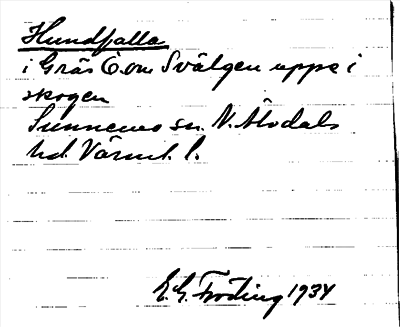 Hundfalla
i Gräs Ö. om Svälgen uppe i
skogen
Sunnemo sn. N. Älvdals
hd. Värml. l.
E. G. Fröding 1934